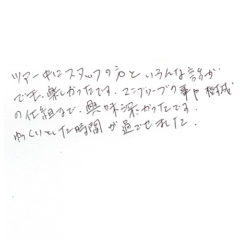 ツアー中にスタッフの方といろんな話が
でき、楽しかったです。マニグリーブの
の仕組まで、興味深かったです。
ゆっくりとした時間が過ごせました。